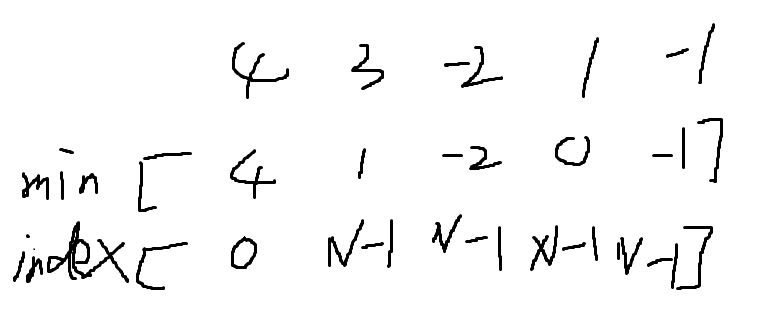 4 3 -2 1 -1
min [ 4 1 -2 0 -1]
index[ 0 N-1 N-1 N-1 N-1]